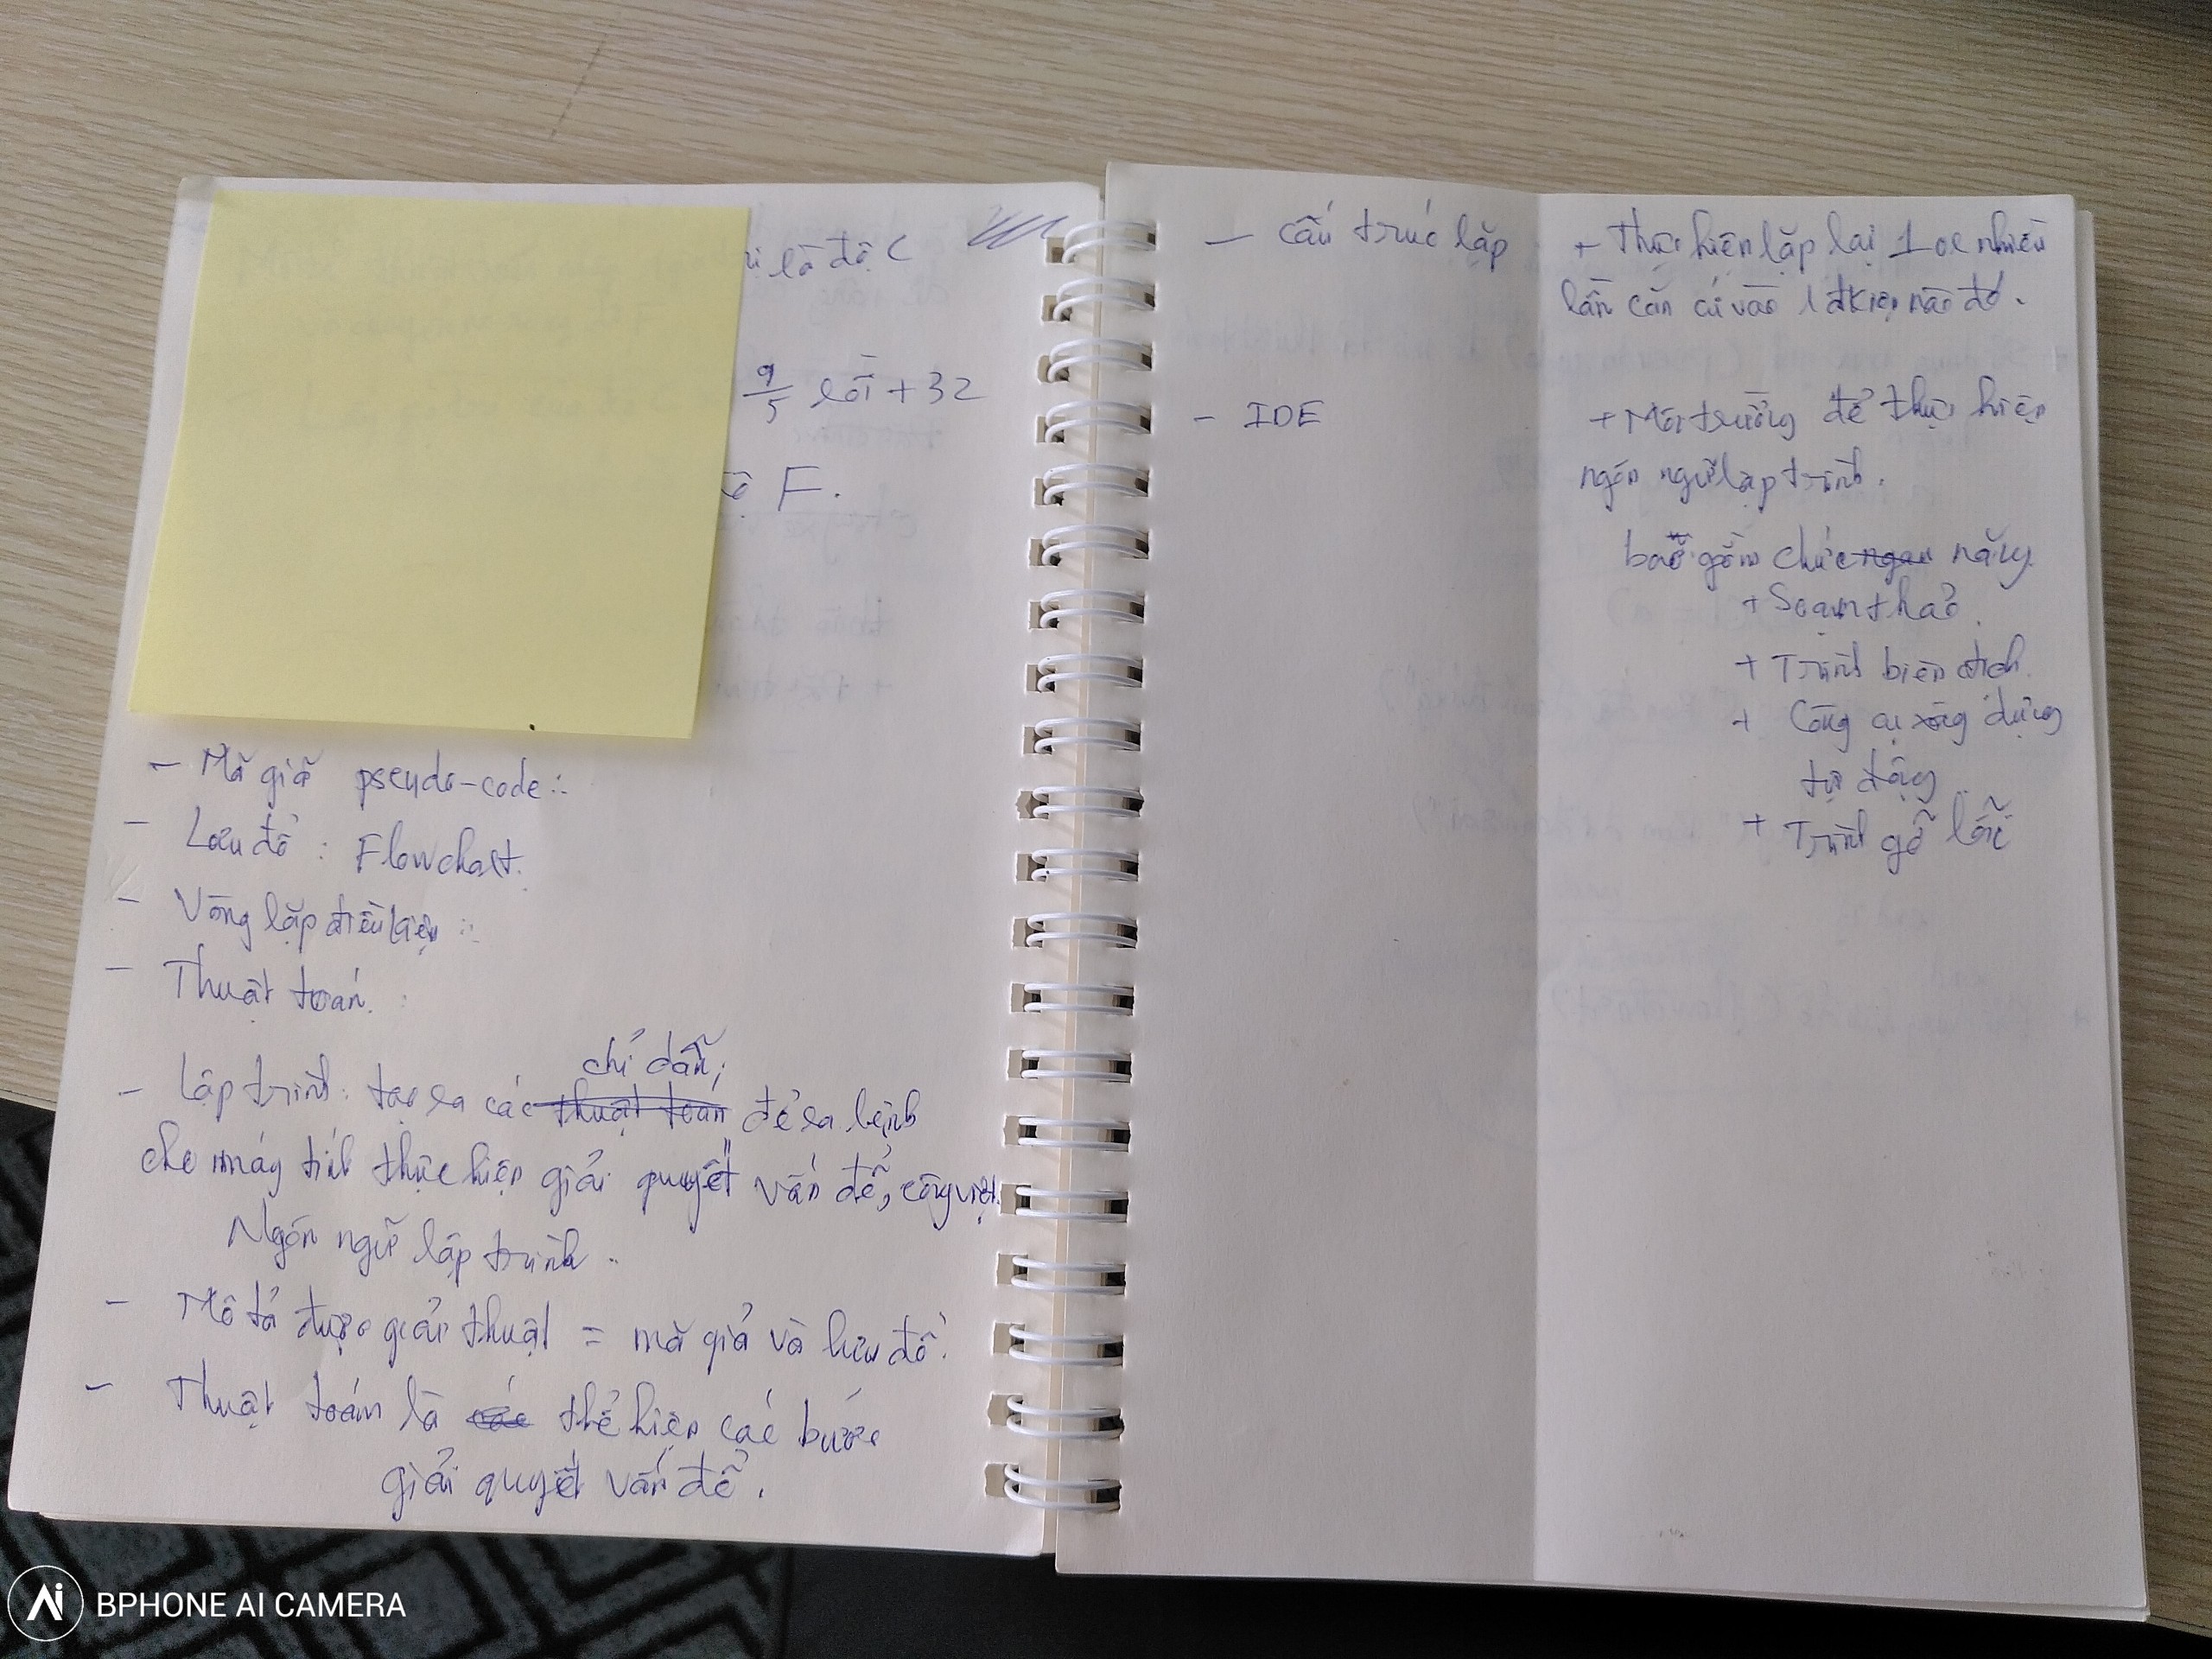 là độ C
9/5 + 32
F.
- Mã giả pseudo-code :
- Lưu đồ : Flowchart.
- Vòng lặp điều kiện :
- Thuật toán :
chỉ dẫn,
- Lập trình: tạo ra các thuật toán để ra lệnh
cho máy tính thực hiện giải quyết vấn đề, công việc.
Ngôn ngữ lập trình.
- Mô tả được giải thuật = mã giả và lưu đồ.
- Thuật toán là các thể hiện các bước
giải quyết vấn đề.
- Cấu trúc lặp
+ Thực hiện lặp lại 1 or nhiều
lần căn cứ vào 1 đkiện nào đó.
- IDE
+ Môi trường để thực hiện
ngôn ngữ lập trình.
bao gồm chức ngan năng
+ Soạn thảo.
+ Trình biên dịch.
+ Công cụ xây dựng
tự động
+ Trình gỡ lỗi
BPHONE AI CAMERA